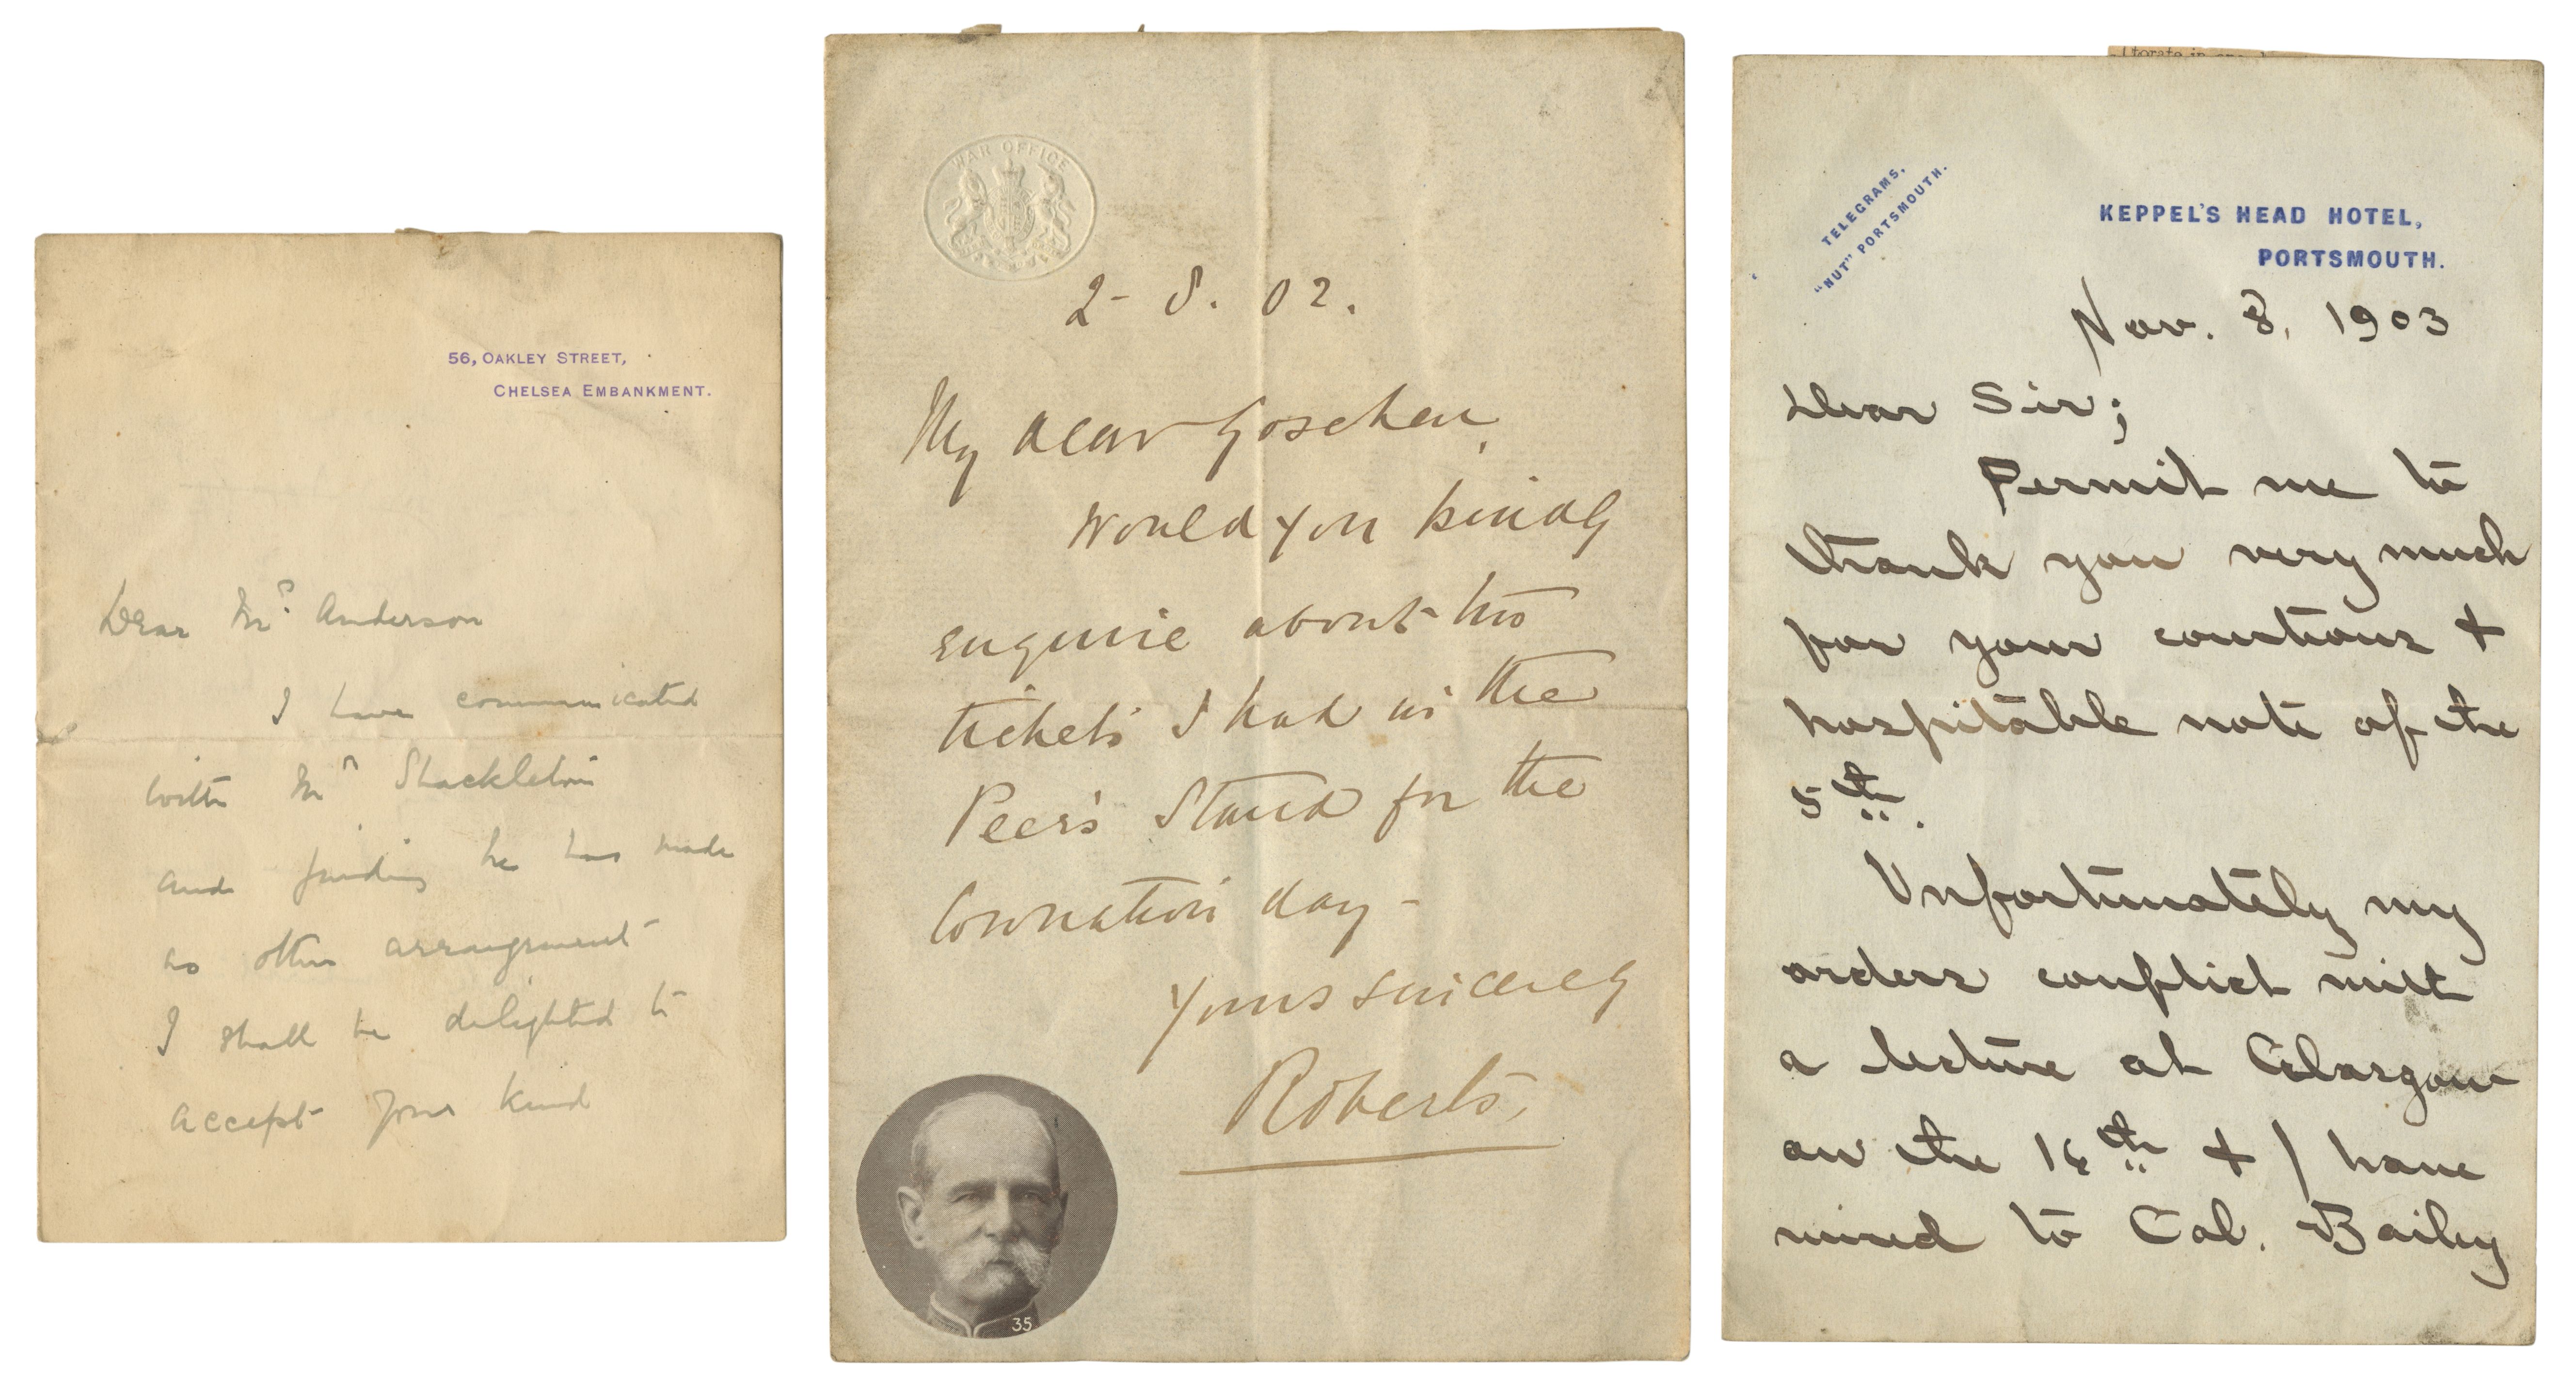 56, OAKLEY STREET,
CHELSEA EMBANKMENT.
Dear Mr. Anderson
I have communicated
with Mr Shackleton
and finding he has made
no other arrangement
I shall be delighted to
accept your kind
WAR OFFICE
2-8.02.
My dear Goschen,
Would you kindly
enquire about two
tickets I had in the
Peers Stand for the
Coronation day-
Yours sincerely
Roberts.
35
TELEGRAMS,
"NUT" PORTSMOUTH.
KEPPEL'S HEAD HOTEL,
PORTSMOUTH.
Nov. 8, 1903
Dear Sir;
Permit me to
thank you very much
for your courteous &
hospitable note of the
5th.
Unfortunately my
orders conflict with
a lecture at Glasgow
on the 16th & I have
wired to Col. Bailey